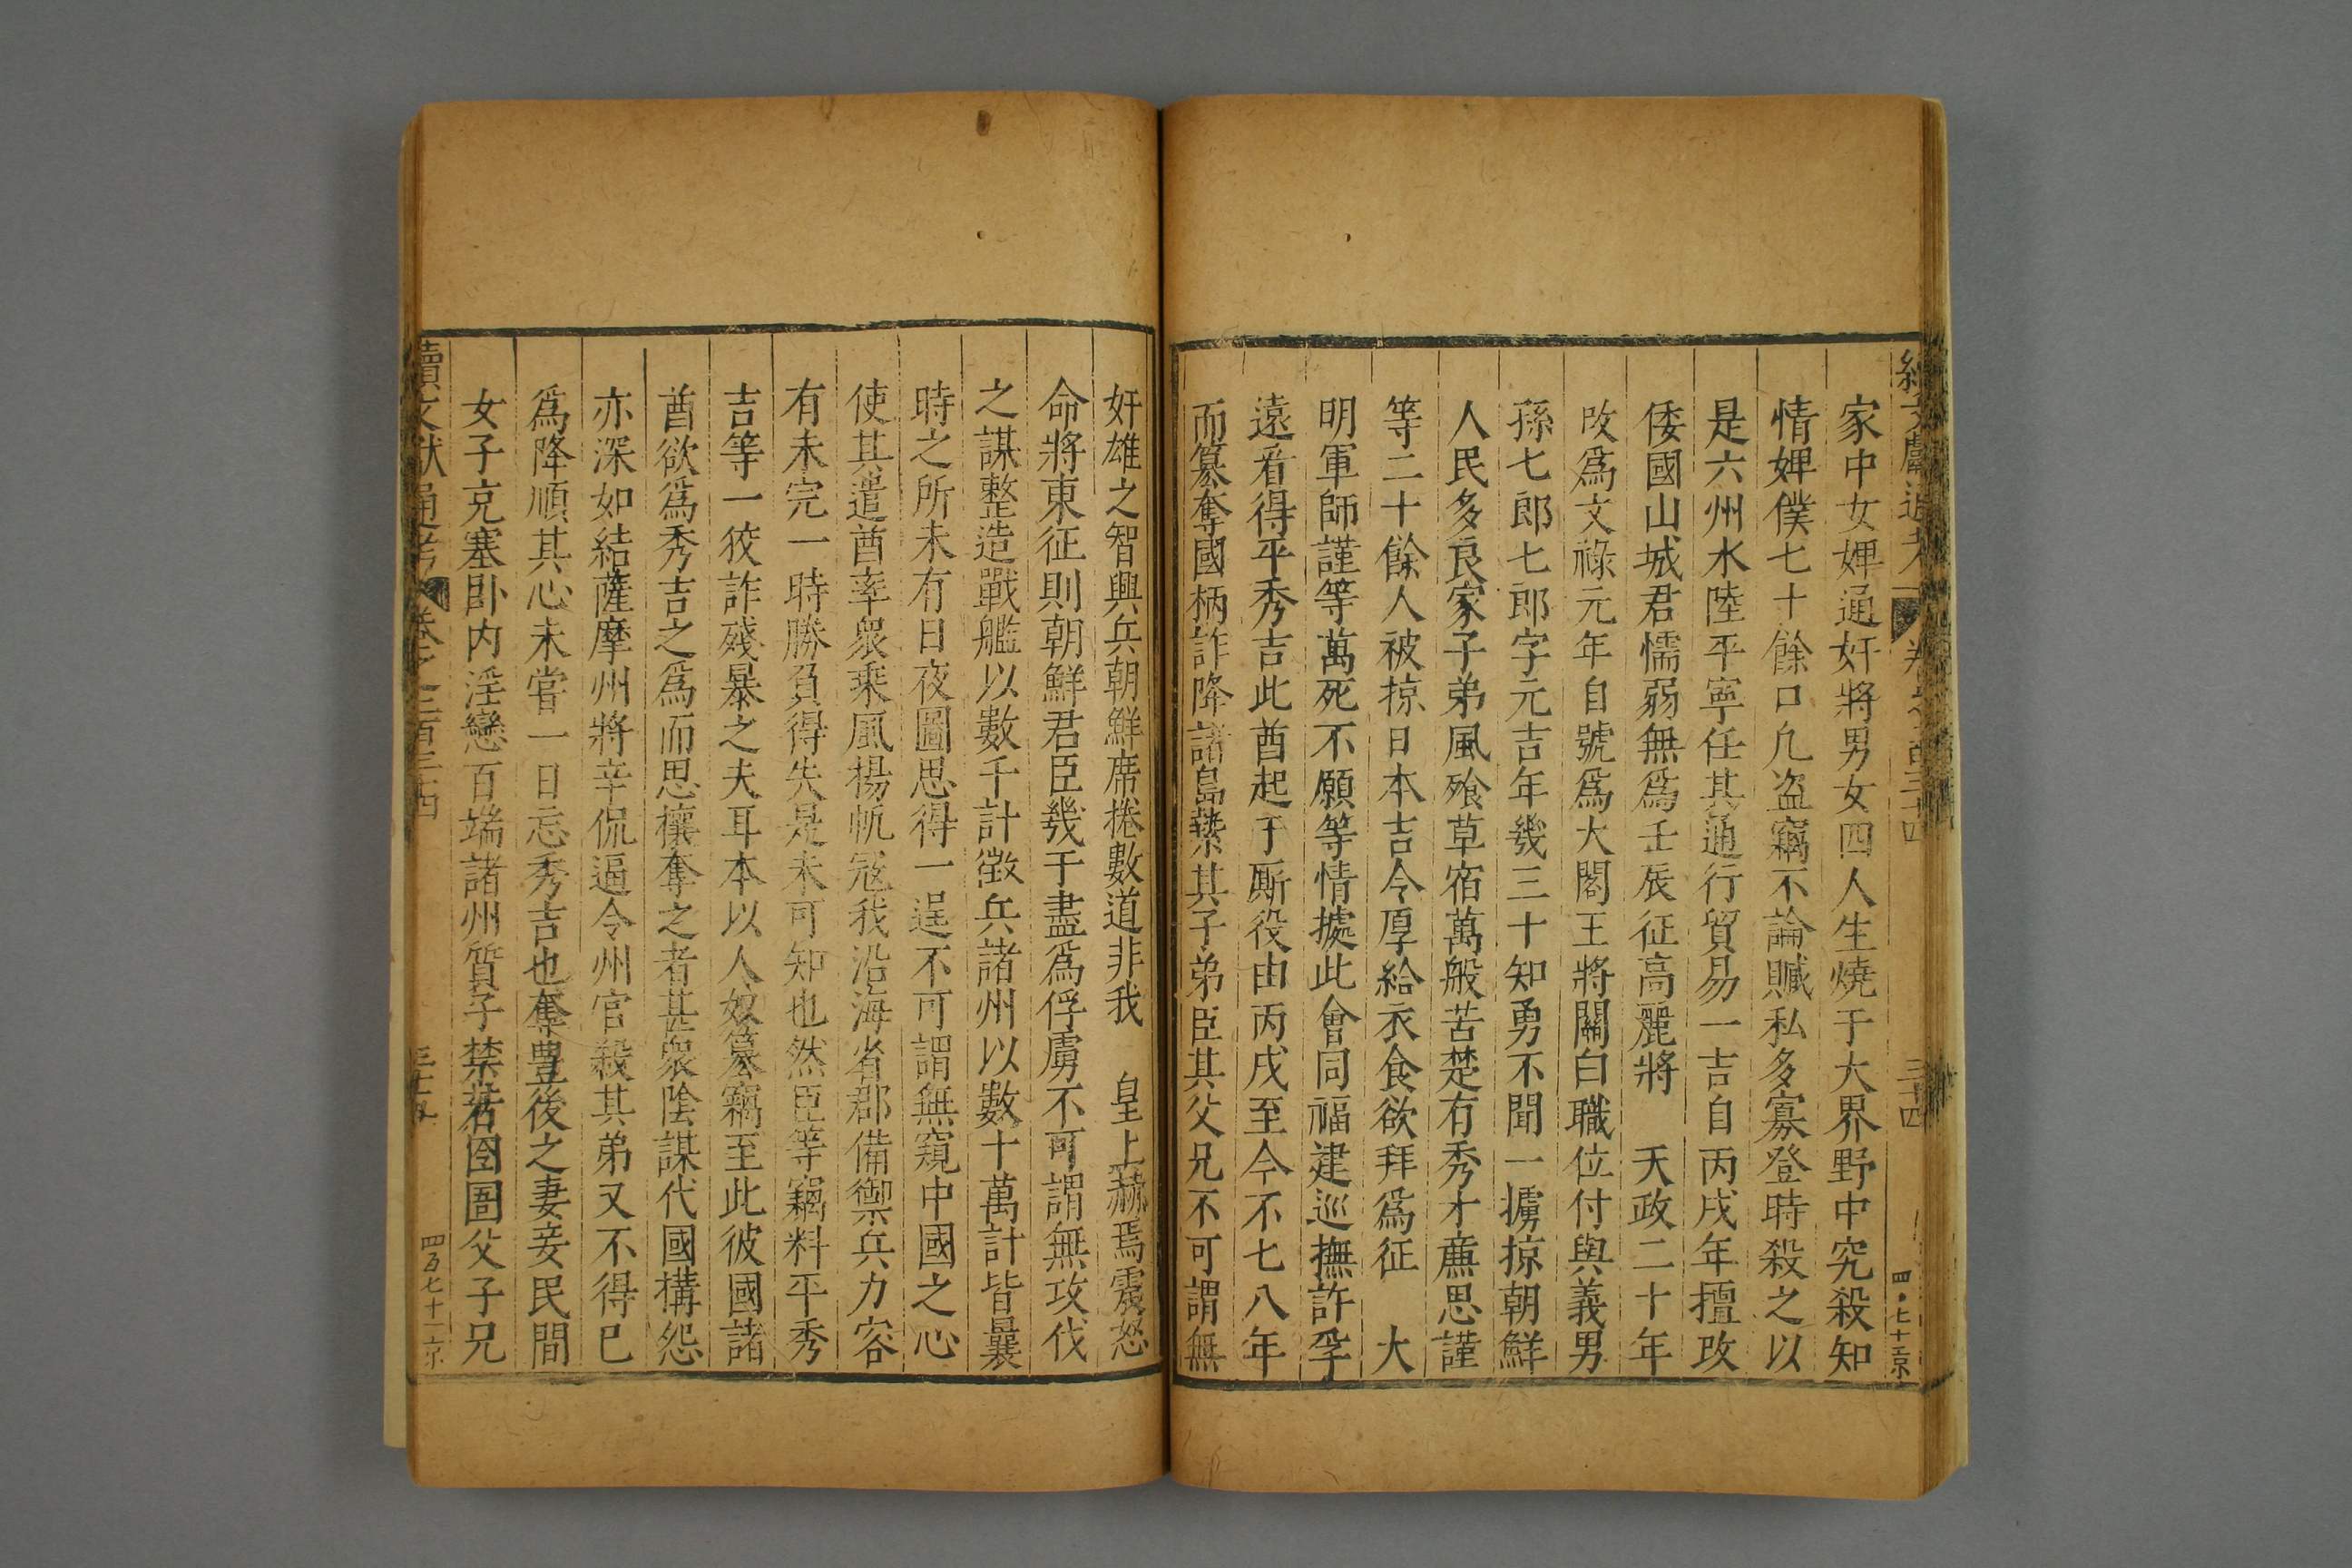 家中女婢通奸將男女四人生燒于大界野中究殺知
情婢僕七十餘口凡盗竊不論贓私多寡登時殺之以
是六州水陸平寧任其通行貿易一吉自丙戌年擅攻
倭國山城君懦弱無爲壬辰征高麗將 天政二十年
改爲文祿元年自號爲大閣王將關白職位付與義男
孫七郎七郎字元吉年幾三十知勇不聞一擄掠朝鮮
人民多良家子弟風飧草宿萬般苦楚有秀才廉思謹
等二十餘人被掠日本吉令厚給衣食欲拜爲征 大
明軍師謹等萬死不願等情據此會同福建巡撫許孚
遠看得平秀吉此酋起于厮役由丙戌至今不七八年
而篡奪國柄詐降諸島縶其子弟臣其父兄不可謂無
奸雄之智興兵朝鮮席捲數道非我 皇上赫焉震怒
命將東征則朝鮮君臣幾于盡爲俘虜不可謂無攻伐
之謀整造戰艦以數千計徵兵諸州以數十萬計皆曩
時之所未有日夜圖思得一逞不可謂無窺中國之心
使其遣酋率衆乘風揚帆寇我沿海省郡備禦兵力容
有未完一時勝負得失是未可知也然臣等竊料平秀
吉等一狡詐殘暴之夫耳本以人奴篡竊至此彼國諸
酋欲爲秀吉之爲而思攘奪之者甚衆陰謀代國構怨
亦深如結薩摩州將幸侃逼令州官殺其弟又不得已
爲降順其心未嘗一日忘秀吉也奪豊後之妻妾民間
女子充塞卧内淫戀百端諸州質子禁若囹圄父子兄
續文獻通考 卷之二百三四 三十五